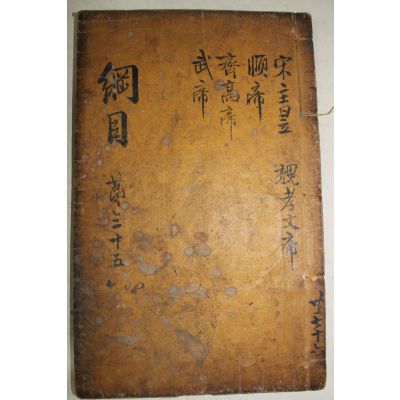 綱目
苐三十五
宋主昱
順帝
齊高帝
武帝
魏孝文帝
共七十六